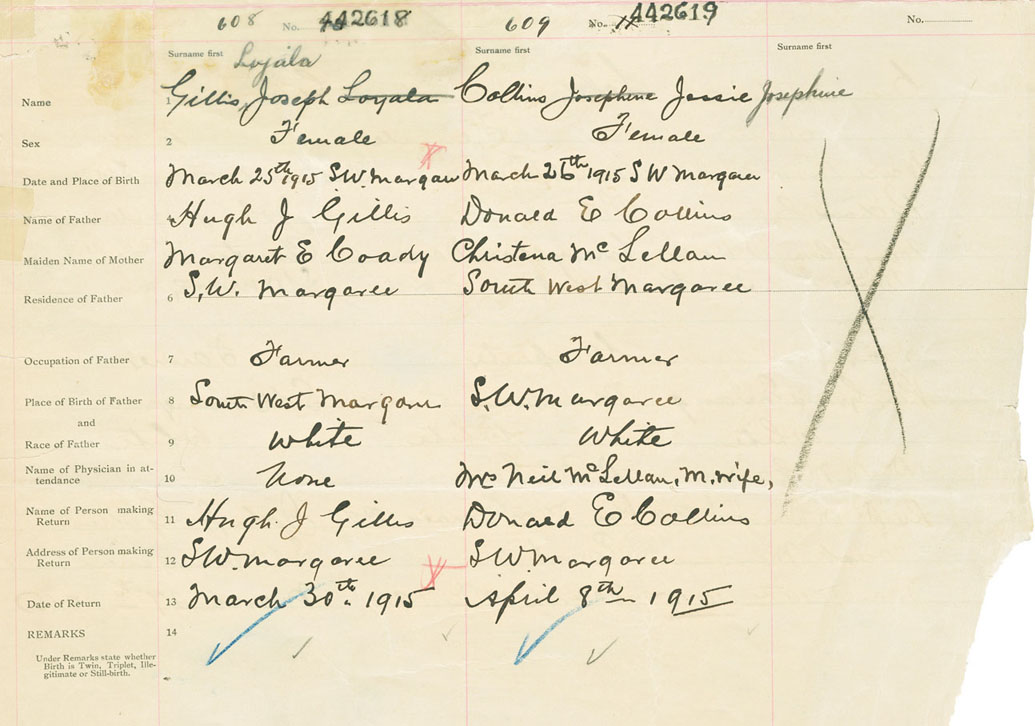 608 No. 442618 609 No. 442619 No.
Surname first Loyala Surname first Surname first
Name 1 Gillis, Joseph Loyala Collins Josephine Jessie Josephine
Sex 2 Female Female
Date and Place of Birth March 25th 1915 S.W. Margaree March 26th 1915 S W Margaree
Name of Father 4 Hugh J Gillis Donald E Collins
Maiden Name of Mother Margaret E Coady Christena Mc Lellan
Residence of Father 6 S.W. Margaree South West Margaree
Occupation of Father 7 Farmer Farmer
Place of Birth of Father 8 South West Margaree S.W. Margaree
and
Race of Father 9 White White
Name of Physician in at-
tendance 10 None Mrs Neil McLellan, M. wife,
Name of Person making
Return 11 Hugh J Gillis Donald E Collins
Address of Person making
Return 12 S.W. Margaree S.W. Margaree
Date of Return 13 March 30th. 1915 April 8th 1915
REMARKS 14
Under Remarks state whether
Birth is Twin, Triplet, Ille-
gitimate or Still-birth.